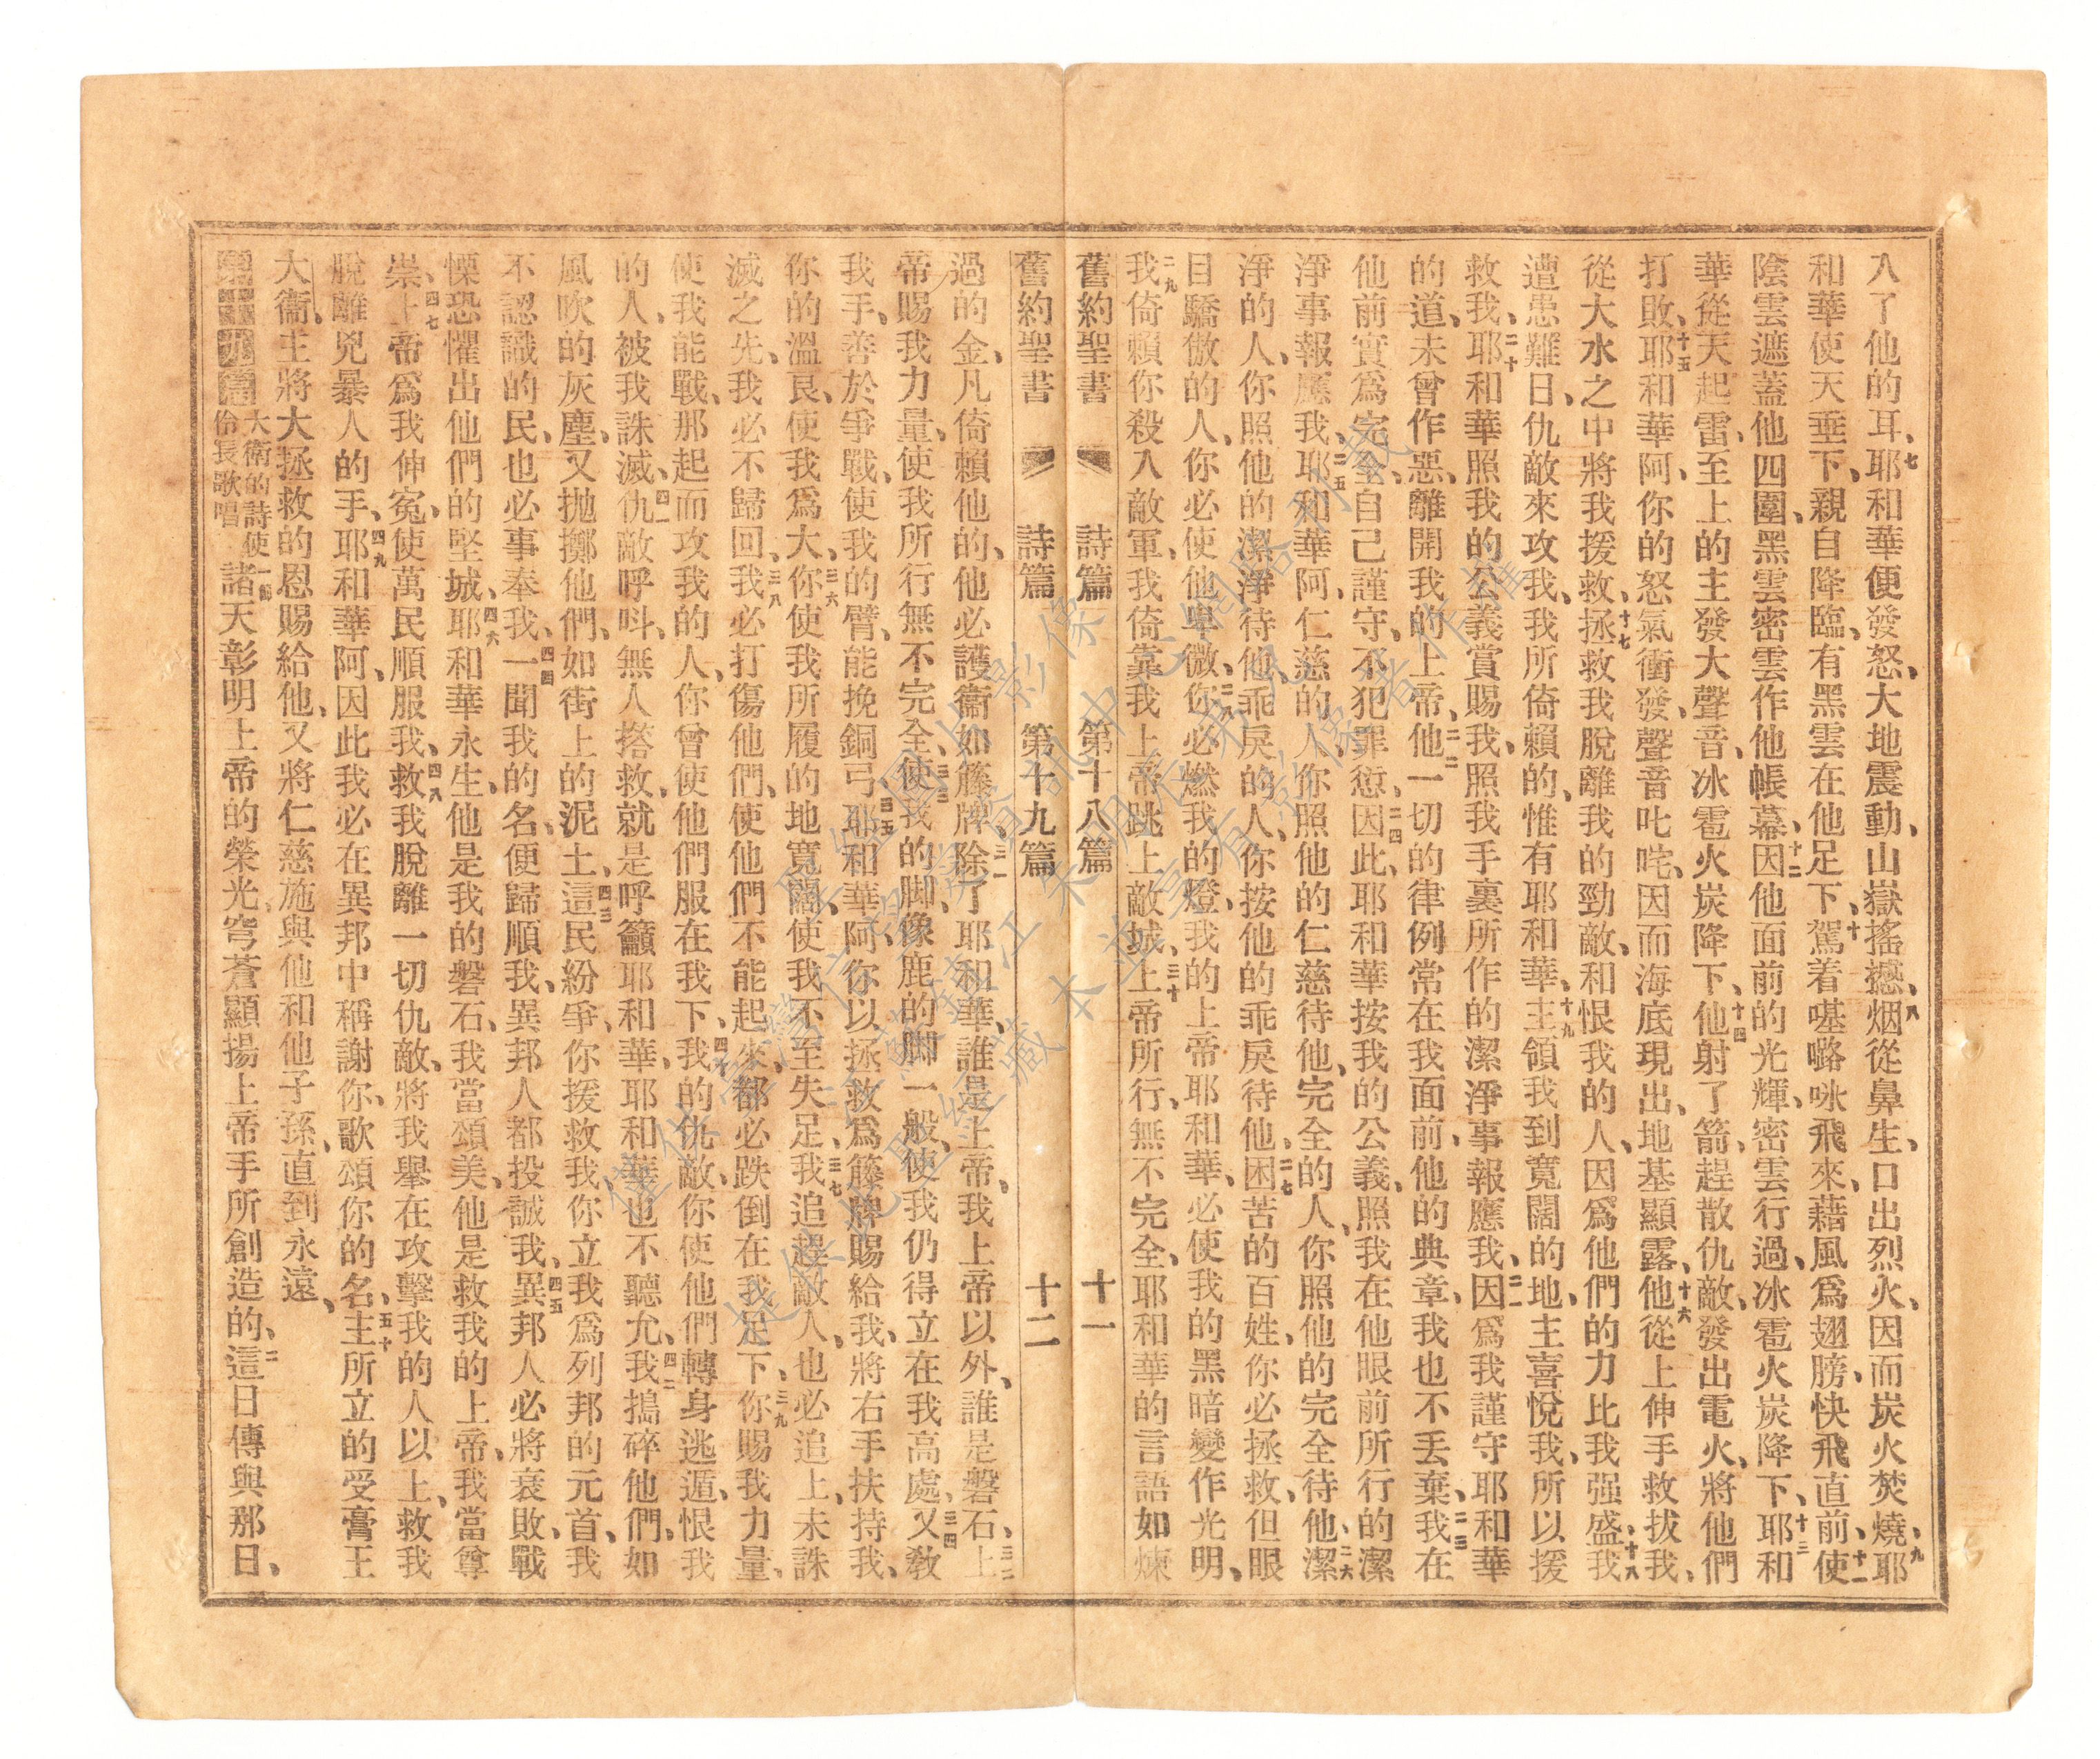 入了他的耳、七耶和華便發怒、大地震動、山嶽搖撼、八烟從鼻生、口出烈火、因而炭火焚燒、九耶
和華使天垂下、親自降臨、有黑雲在他足下、十駕着嗟嚕咏飛來、藉風爲翅膀、快飛直前、十一使
陰雲遮蓋他四圍、黑雲密雲作他帳幕、十二因他面前的光輝、密雲行過、冰雹火炭降下、十三耶和
華從天起雷、至上的主發大聲音、冰雹火炭降下、十四他射了箭、趕散仇敵、發出電火、將他們
打敗、十五耶和華阿、你的怒氣衝發、聲音叱咤、因而海底現出、地基顯露、十六他從上伸手救拔我、
從大水之中將我援救、十七拯救我脫離我的勁敵、和恨我的人、因爲他們的力比我强盛、十八我
遭患難日、仇敵來攻我、我所倚賴的、惟有耶和華、十九主領我到寬闊的地、主喜悅我、所以援
救我、二十耶和華照我的公義賞賜我、照我手裏所作的潔淨事報應我、二一因爲我謹守耶和華
的道、未曾作惡、離開我的上帝、二二他一切的律例常在我面前、他的典章、我也不丟棄、二三我在
他前實爲完全、自己謹守、不犯罪愆、二四因此、耶和華按我的公義、照我在他眼前所行的潔
淨事報應我、二五耶和華阿、仁慈的人、你照他的仁慈待他、完全的人、你照他的完全待他、二六潔
淨的人、你照他的潔淨待他、乖戾的人、你按他的乖戾待他、二七困苦的百姓、你必拯救、但眼
目驕傲的人、你必使他卑微、二八你必燃我的燈、我的上帝耶和華、必使我的黑暗變作光明、
二九我倚賴你殺入敵軍、我倚靠我上帝跳上敵城、三十上帝所行、無不完全、耶和華的言語如煉
舊約聖書 詩篇 第十八篇 十一
舊約聖書 詩篇 第十九篇 十二
過的金、凡倚賴他的、他必護衞如籐牌、三一除了耶和華、誰是上帝、我上帝以外、誰是磐石、三二上
帝賜我力量、使我所行無不完全、三三使我的脚、像鹿的脚一般、使我仍得立在我高處、三四又敎
我手、善於爭戰、使我的臂、能挽銅弓、三五耶和華阿、你以拯救爲籐牌賜給我、將右手扶持我、
你的溫良、使我爲大、三六你使我所履的地寬闊、使我不至失足、三七我追趕敵人、也必追上、未誅
滅之先、我必不歸回、三八我必打傷他們、使他們不能起來、都必跌倒在我足下、三九你賜我力量、
使我能戰、那起而攻我的人、你曾使他們服在我下、四十我的仇敵、你使他們轉身逃遁、恨我
的人、被我誅滅、四一仇敵呼呌、無人搭救、就是呼籲耶和華、耶和華也不聽允、四二我搗碎他們、如
風吹的灰塵、又拋擲他們、如街上的泥土、四三這民紛爭、你援救我、你立我爲列邦的元首、我
不認識的民、也必事奉我、四四一聞我的名、便歸順我、異邦人都投誠我、四五異邦人必將衰敗、戰
慄恐懼出他們的堅城、四六耶和華永生、他是我的磐石、我當頌美、他是救我的上帝、我當尊
崇、四七上帝爲我伸冤、使萬民順服我、四八救我脫離一切仇敵、將我舉在攻擊我的人以上、救我
脫離兇暴人的手、四九耶和華阿、因此我必在異邦中稱謝你、歌頌你的名、五十主所立的受膏王
大衞、主將大拯救的恩賜給他、又將仁慈施與他和他子孫、直到永遠、
第十九篇 大衞的詩使伶長歌唱 一節諸天彰明上帝的榮光、穹蒼顯揚上帝手所創造的、二這日傳與那日、